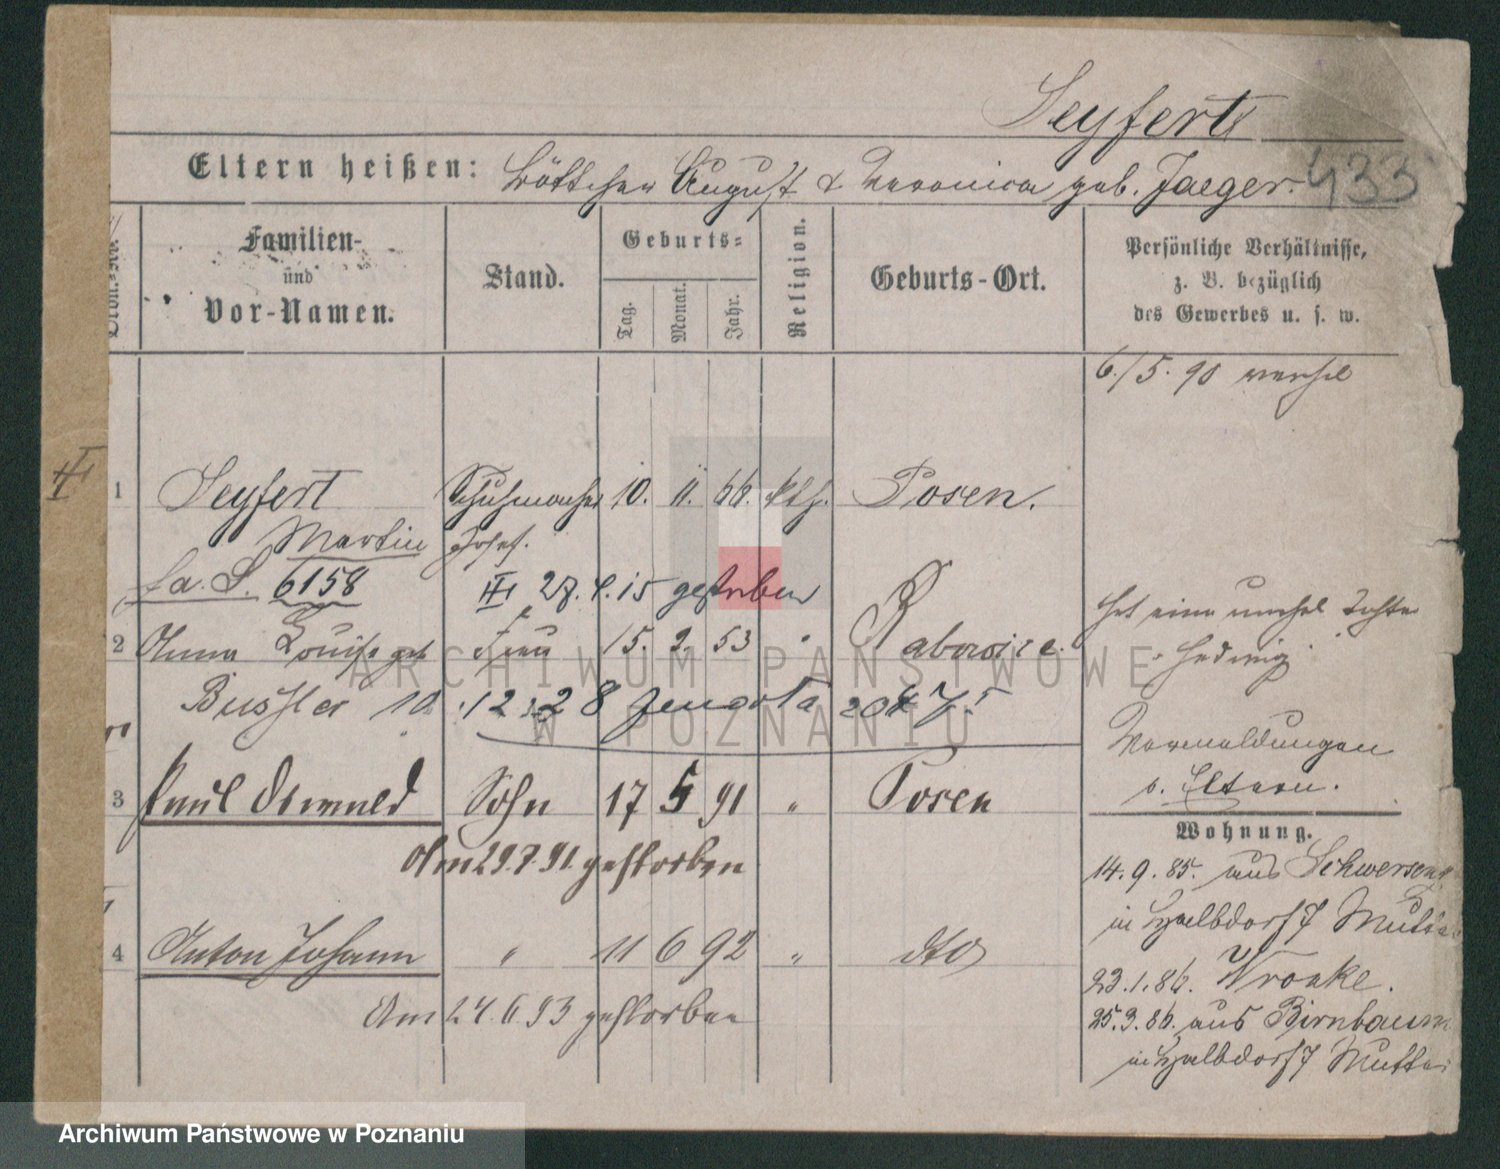 Seyfert
433
Eltern heißen: Böttcher August & Veronica geb. Jaeger.
Ordn.-No.
Familien-
und
Vor-Namen.
Stand.
Geburts-
Tag.
Monat.
Jahr.
Religion.
Geburts-Ort.
Persönliche Verhältnisse,
z. B. bezüglich
des Gewerbes u. s. w.
6./5. 90
1 Seyfert Schuhmacher 10. 11. 66. kth. Posen.
Martin
6158 27. 4. 15 gestorben
hat eine unehel Tochter
Hedwig
2 Anna Louise geb Frau 15. 2. 53 " Rabowice.
Bussler 10. 12. 28
Vermeldungen
s. Eltern.
3 Paul Oswald Sohn 17 5 91 " Posen
Am 29.7.91. gestorben
Wohnung.
14. 9. 85. aus Schwersenz
in Halbdorfs 7 Mutter
4 Anton Johann " 11 6 92 " dto
Am 24.6.93 gestorben
23.1.86. Wronke.
25.3.86. aus Birnbaum
in Halbdorfs 7 Mutter
ARCHIWUM PAŃSTWOWE
W POZNANIU
Archiwum Państwowe w Poznaniu